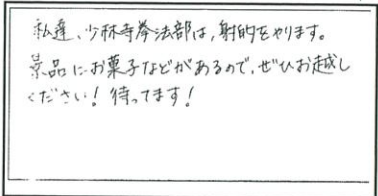 私達、少林寺拳法部は、射的をやります。
景品にお菓子などがあるので、ぜひお越し
ください！待ってます！